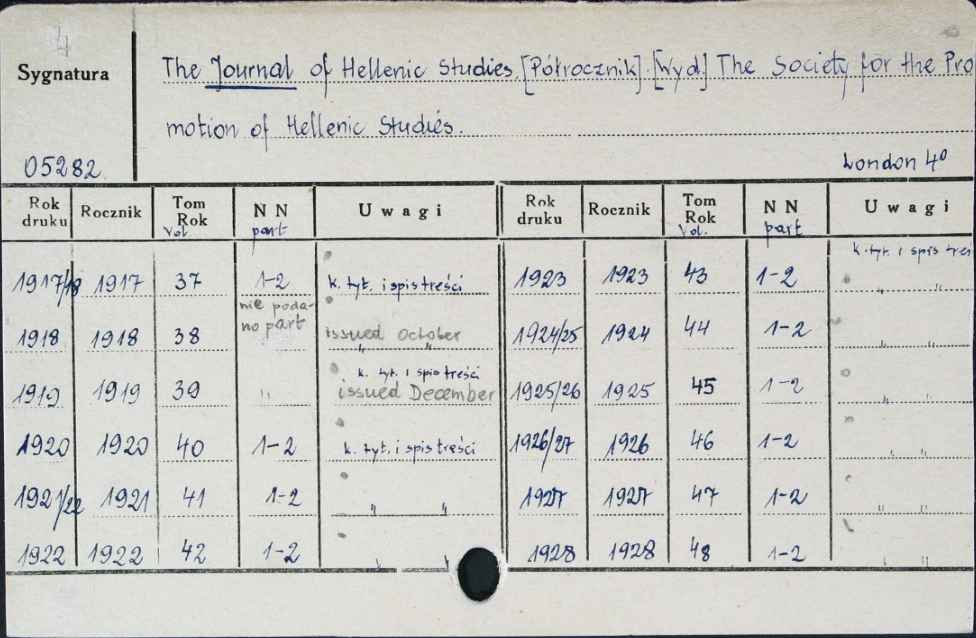 4
Sygnatura
The Journal of Hellenic Studies. [Półrocznik]. [Wyd.] The Society for the Pro
motion of Hellenic Studies.
05282. London 4°
Rok druku Rocznik Tom Rok Vol N N part Uwagi Rok druku Rocznik Tom Rok Vol. N N part Uwagi
k. tyt. i spis treś
1917/18 1917 37 1-2 k. tyt. i spis treści 1923 1923 43 1-2 " "
nie poda-
no part
1918 1918 38 issued October 1924/25 1924 44 1-2 " "
" "
k. tyt. i spis treści
1919 1919 39 " issued December 1925/26 1925 45 1-2 " "
1920 1920 40 1-2 k. tyt. i spis treści 1926/27 1926 46 1-2 " "
1921/22 1921 41 1-2 " " 1927 1927 47 1-2 " "
1922 1922 42 1-2 " " 1928 1928 48 1-2 " "